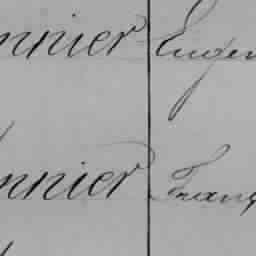 nnier Eugen
nnier Franç